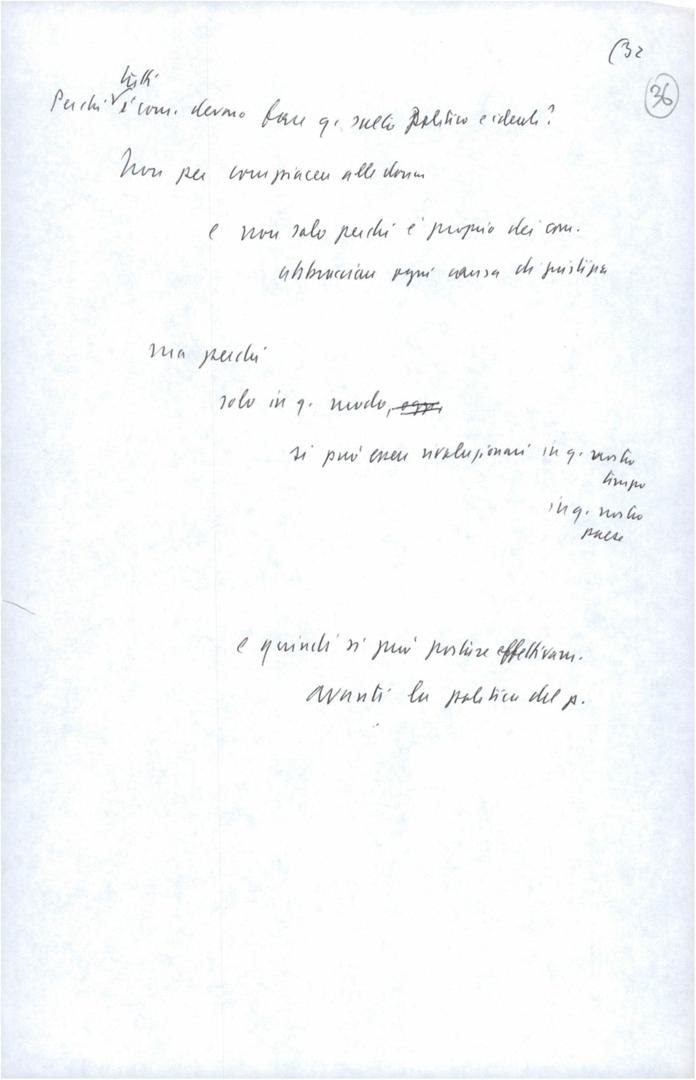 (32
36
tutti
Perché i com. devono fare q. scelta politica e ideale?
Non per compiacere alle donne
e non solo perché è proprio dei com.
abbracciare ogni causa di giustizia
ma perché
solo in q. modo, oggi,
si può essere rivoluzionari in q. nostro
tempo
in q. nostro
paese
e quindi si può portare effettivam.
avanti la politica del p.